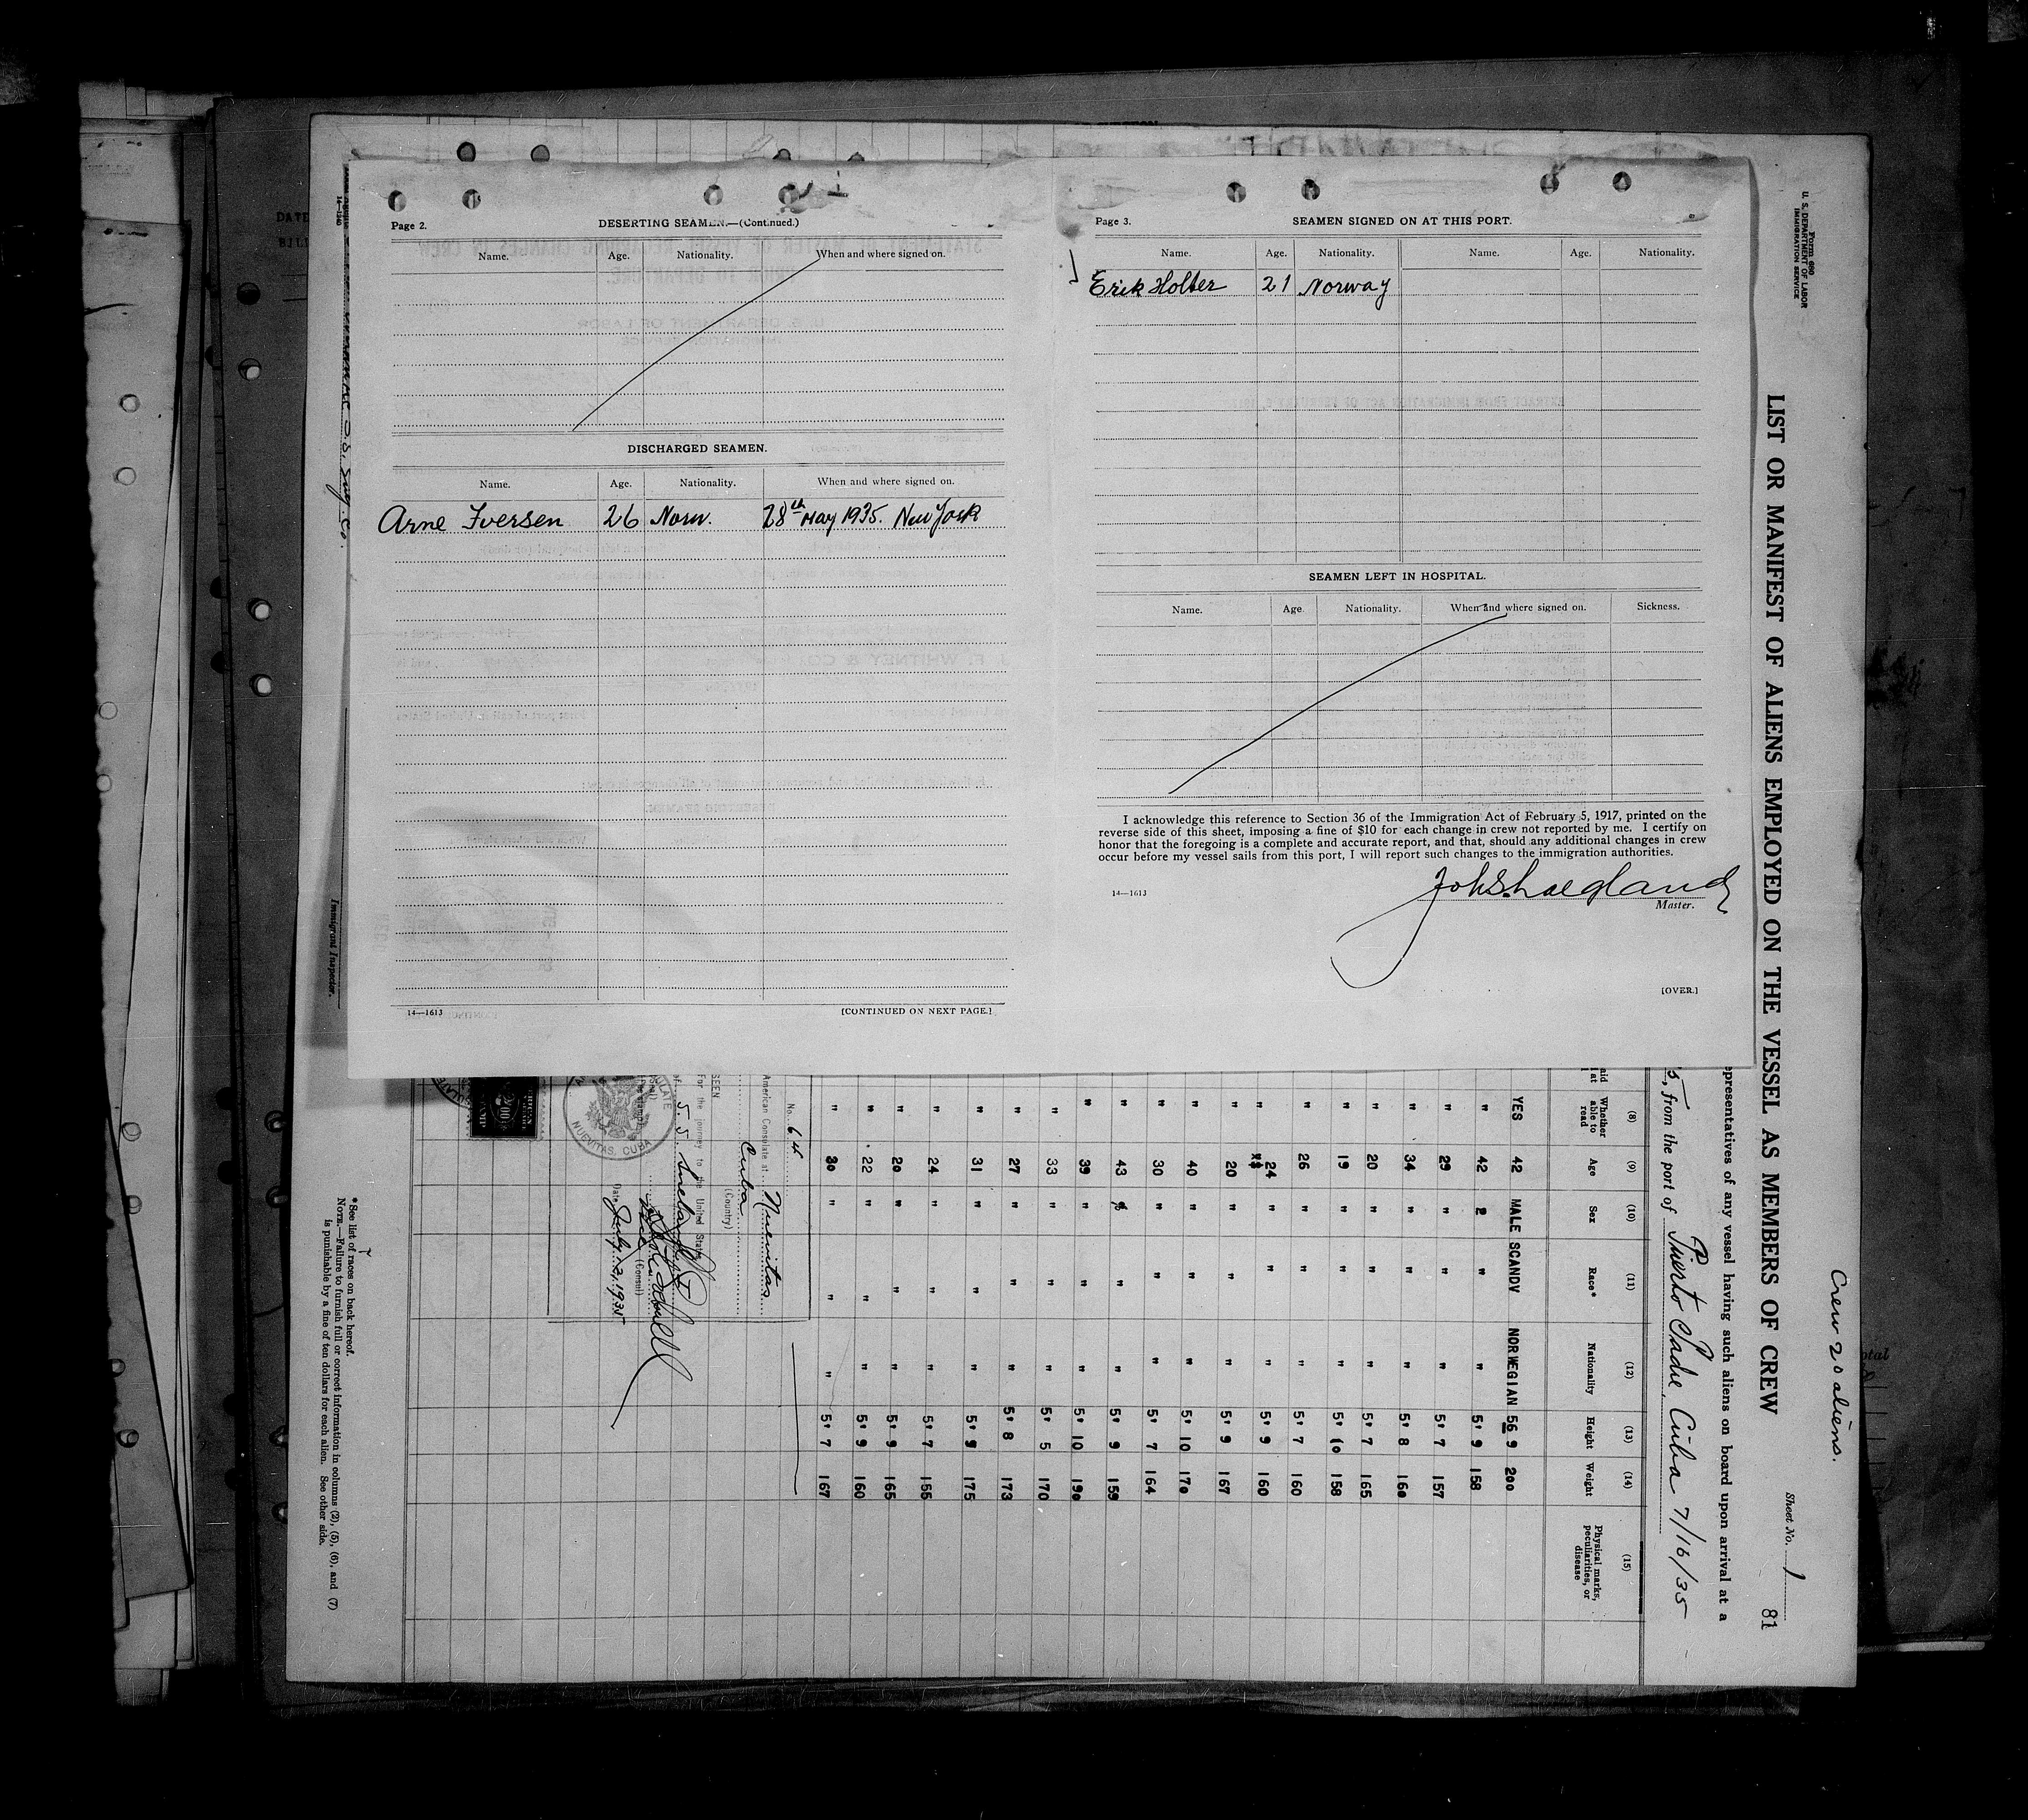 Page 2.
DESERTING SEAMEN.—(Continued.)
Name. Age. Nationality. When and where signed on.
DISCHARGED SEAMEN.
Name. Age. Nationality. When and where signed on.
Arne Iversen 26 Norw. 28th May 1935. New York
14—1613
[CONTINUED ON NEXT PAGE.]
Page 3.
SEAMEN SIGNED ON AT THIS PORT.
Name. Age. Nationality. Name. Age. Nationality.
Erik Holter 21 Norway
SEAMEN LEFT IN HOSPITAL.
Name. Age. Nationality. When and where signed on. Sickness.
I acknowledge this reference to Section 36 of the Immigration Act of February 5, 1917, printed on the
reverse side of this sheet, imposing a fine of $10 for each change in crew not reported by me. I certify on
honor that the foregoing is a complete and accurate report, and that, should any additional changes in crew
occur before my vessel sails from this port, I will report such changes to the immigration authorities.
14—1613
Master.
[OVER.]
Form 680
U. S. DEPARTMENT OF LABOR
IMMIGRATION SERVICE
Crew 20 aliens.
Sheet No. 1
81
LIST OR MANIFEST OF ALIENS EMPLOYED ON THE VESSEL AS MEMBERS OF CREW
representatives of any vessel having such aliens on board upon arrival at a
5, from the port of Puerto Padre, Cuba 7/16/35
(8) (9) (10) (11) (12) (13) (14) (15)
Whether able to read Age Sex Race* Nationality Height Weight Physical marks, peculiarities, or disease
YES 42 MALE SCANDV NORWEGIAN 56 9 200
" 42 " " " 5' 9 158
" 29 " " " 5' 7 157
" 34 " " " 5' 8 160
" 20 " " " 5' 7 165
" 19 " " " 5' 10 158
" 26 " " " 5' 7 160
" 24 " " " 5' 9 160
" 20 " " " 5' 9 167
" 40 " " " 5' 10 170
" 30 " " " 5' 7 164
" 43 " " " 5' 9 159
" 39 " " " 5' 10 190
" 33 " " " 5' 5 170
" 27 " " " 5' 8 173
" 31 " " " 5' 9 175
" 24 " " " 5' 7 155
" 20 " " " 5' 9 165
" 22 " " " 5' 9 160
" 30 " " " 5' 7 167
No. 64
American Consulate at Nuevitas
Cuba
(Country)
SEEN
For the journey to the United States
(Consul)
Date July 12, 1935
NUEVITAS, CUBA
*See list of races on back hereof.
NOTE.—Failure to furnish full or correct information in columns (2), (5), (6), and (7)
is punishable by a fine of ten dollars for each alien. See other side.
Immigrant Inspector.
14—1240